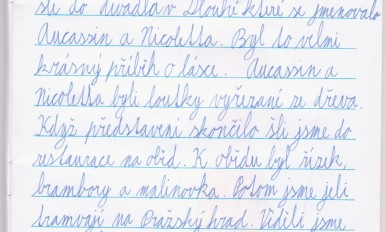 šli do divadla v Dlouhé které se jmenovalo
Aucassin a Nicoletta. Byl to velmi
krásný příběh o lásce. Aucassin a
Nicoletta byli loutky vyřezané ze dřeva.
Když představení skončilo šli jsme do
restaurace na oběd. K obědu byl řízek,
brambory a malinovka. Potom jsme jeli
tramvají na Pražský hrad. Viděli jsme